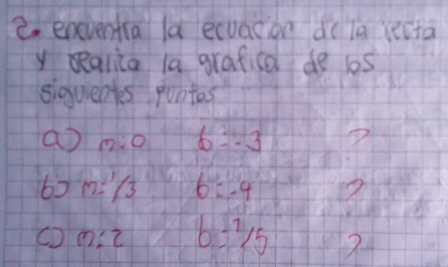 2. encuentra la ecuación de la recta
y realiza la grafica de los
siguientes puntos
a) m=0 b=-3 ?
b) m=1/3 b=-4 ?
c) m=2 b=1/5 ?